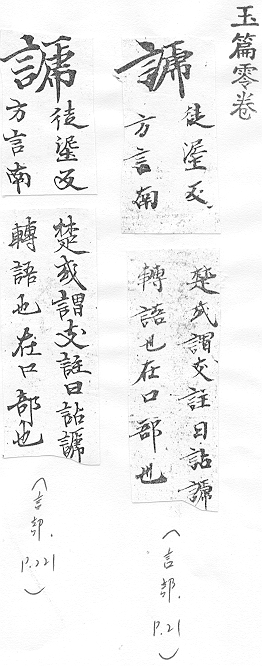 玉篇零卷
謕
徒埿反
方言南
楚或謂支註曰詀謕
轉語也在口部也
(言部. P.21)
謕
徒埿反
方言南
楚或謂支註曰詀謕
轉語也在口部也
(言部. P.221)